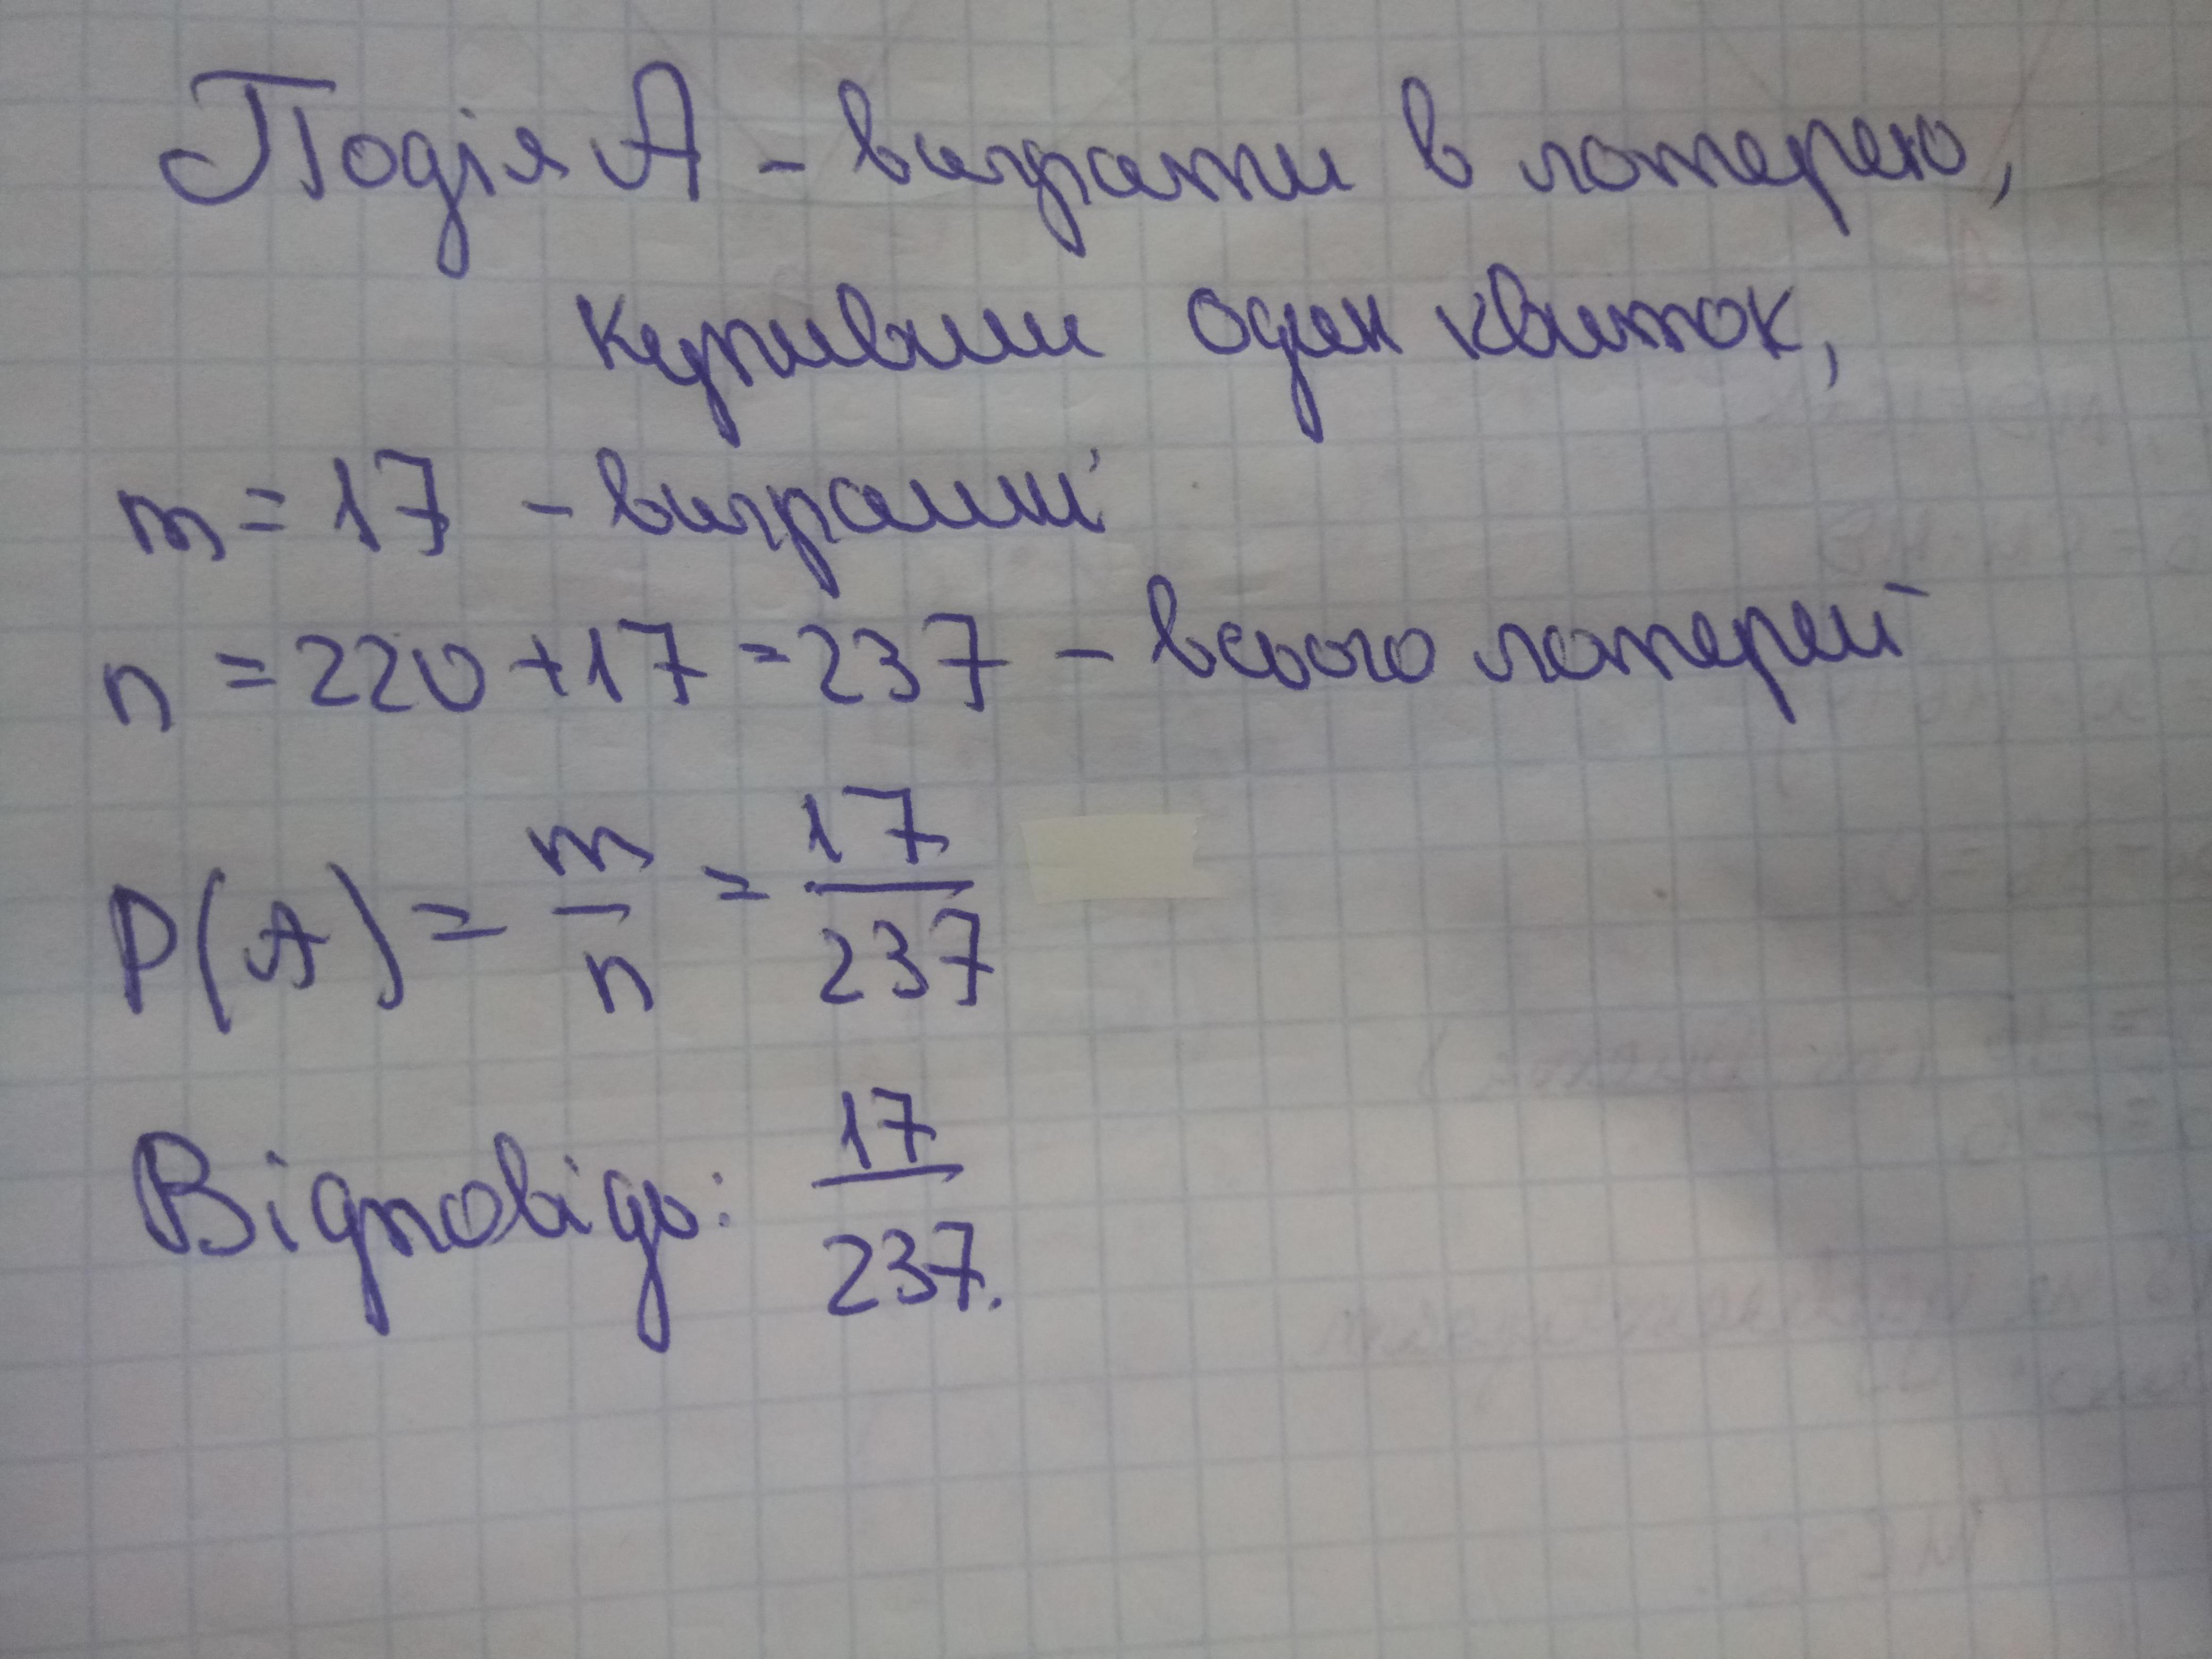 Подія А – виграти в лотерею,
купивши один квиток,
m = 17 – виграші
n = 220 + 17 = 237 – всього лотерей
P(A) = m/n = 17/237
Відповідь: 17/237.